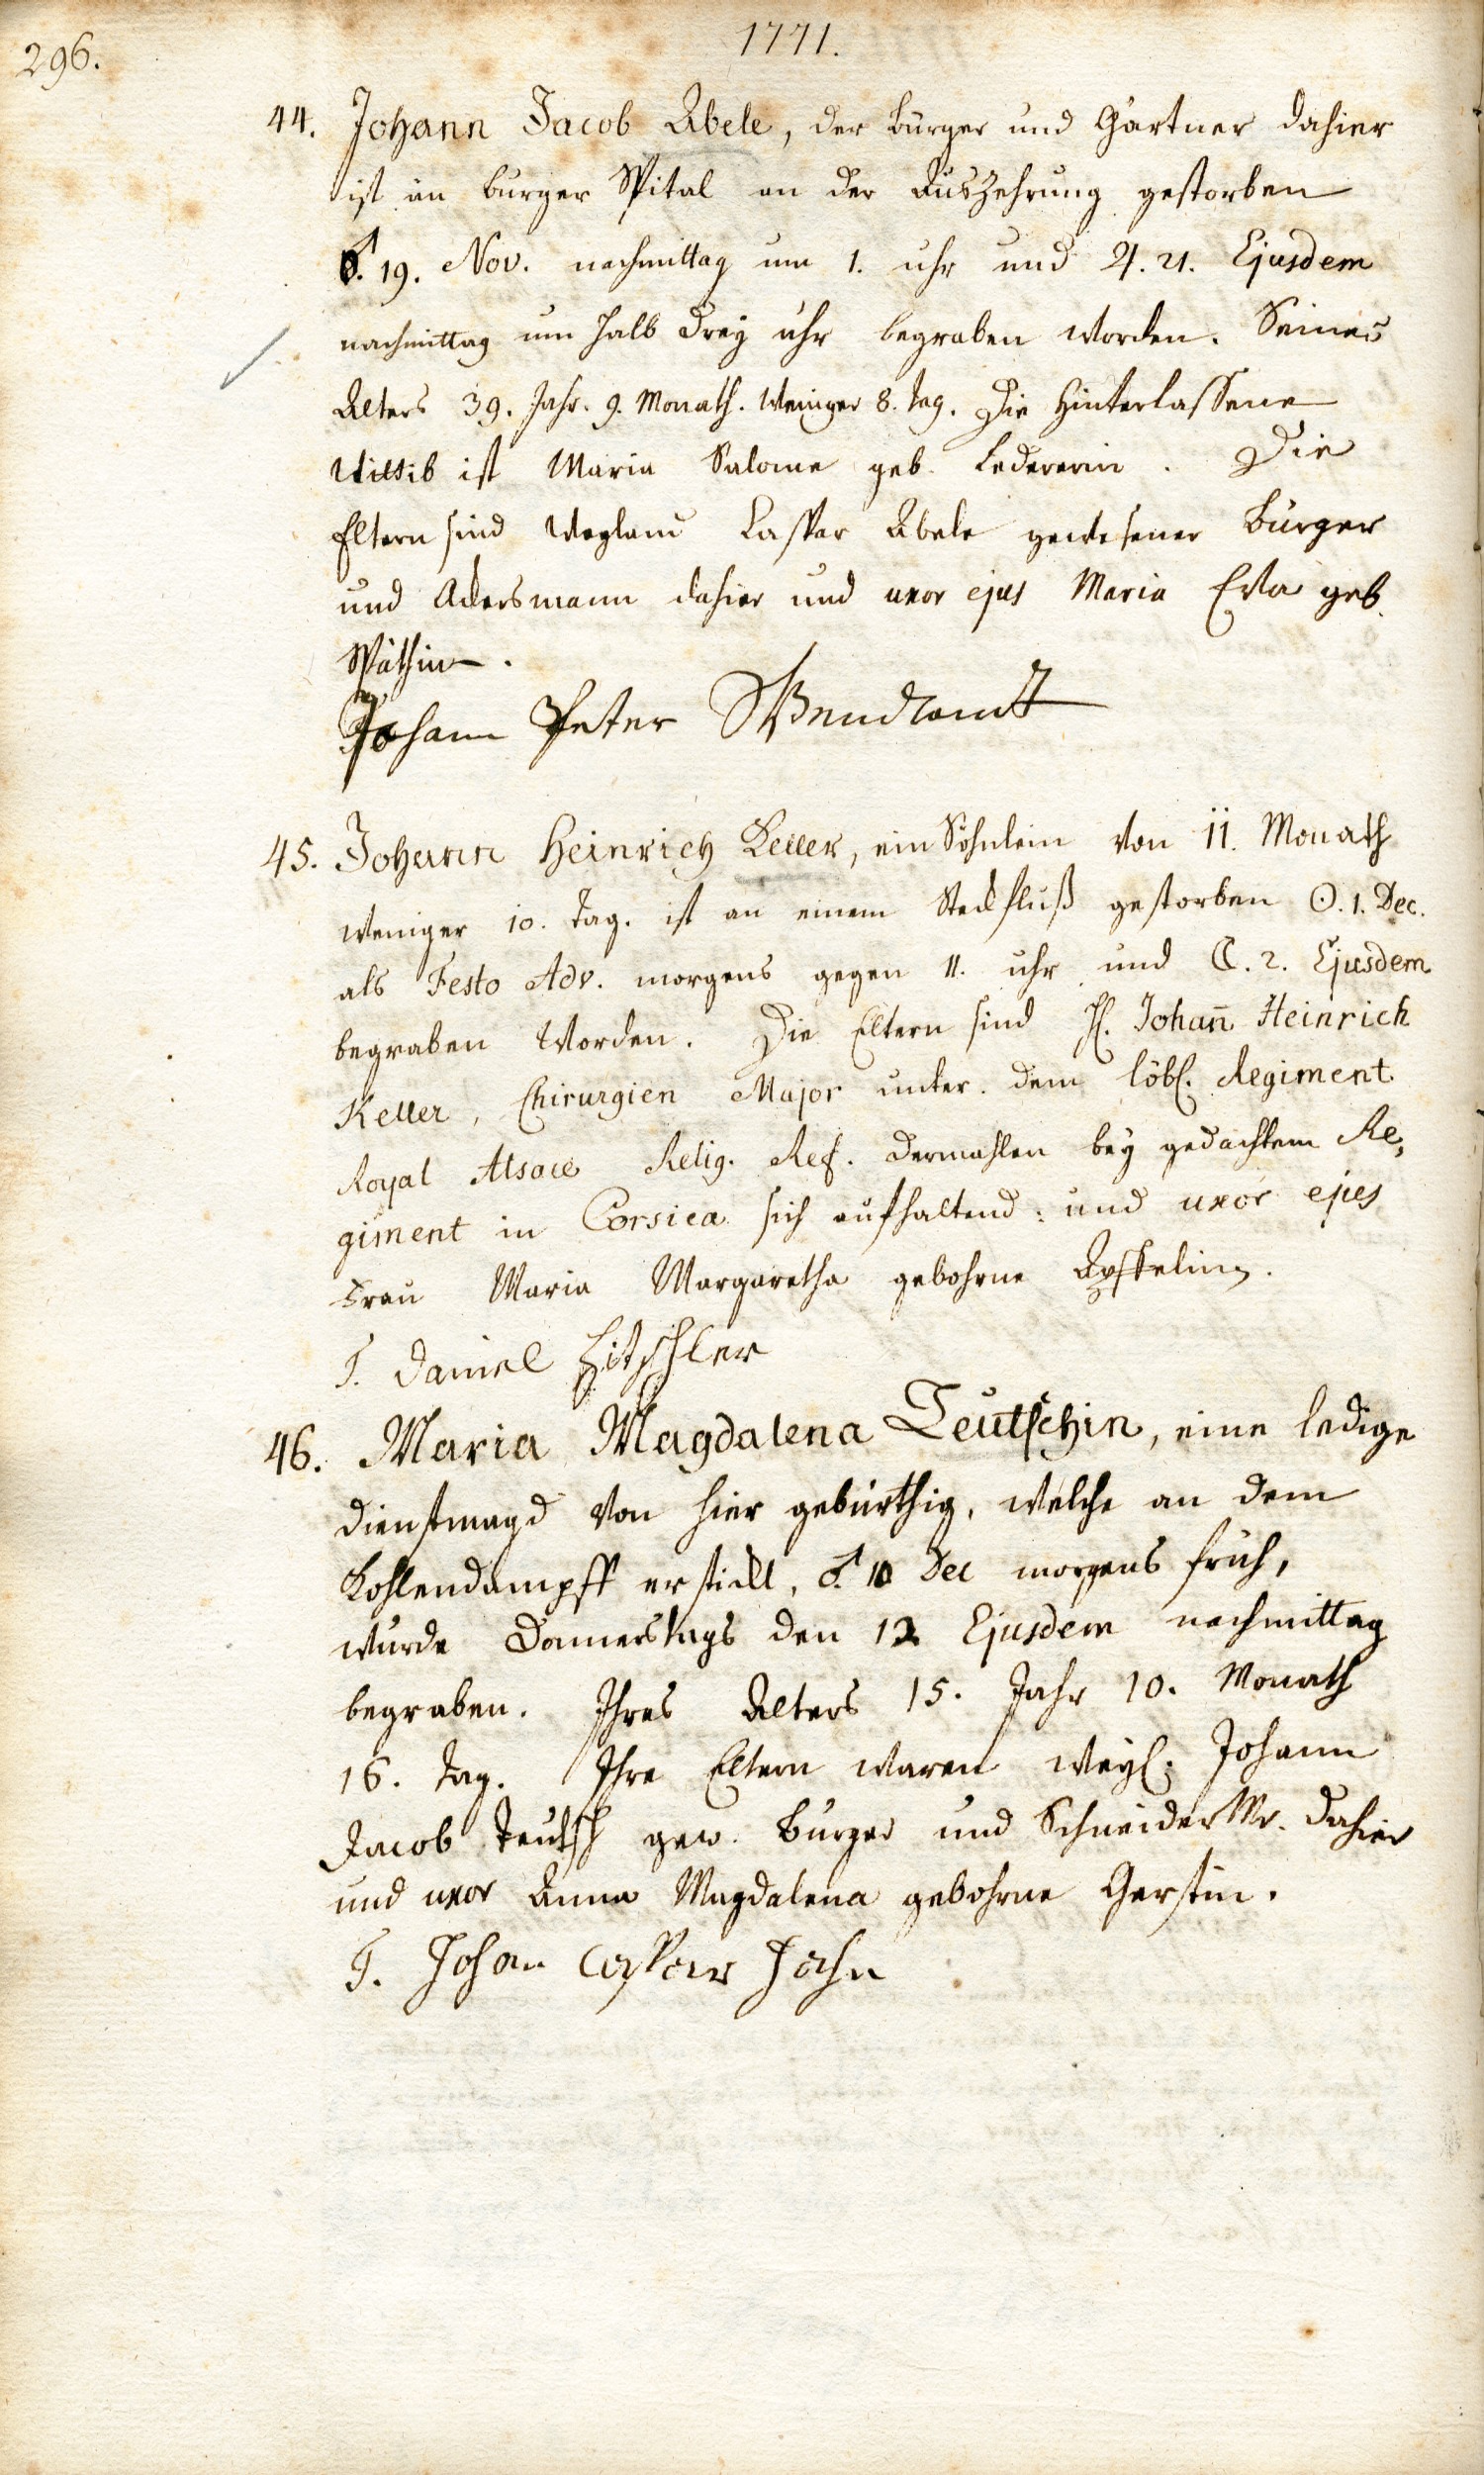 296.
1771.
44. Johann Jacob Abele, der Burger und Gärtner dahier
ist im burger Spital an der Auszehrung gestorben
♂. 19. Nov. nachmittag um 1. uhr und ♃. 21. Ejusdem
nachmittag um halb drey uhr begraben worden. Seines
Alters 39. Jahr. 9. Monath. weniger 8. tag. Die hinterlassene
Wittib ist Maria Salome geb. Ledererin. Die
Eltern sind weyland Caspar Abele gewesener Burger
und Ackersmann dahier und uxor ejus Maria Eva geb.
Späthin.
Johann Peter Wendlandt
45. Johann Heinrich Keller, ein Söhnlein von 11. Monath
weniger 10. tag. ist an einem Steckfluß gestorben ☉. 1. Dec.
als Festo Adv. morgens gegen 11. uhr und ☾. 2. Ejusdem
begraben worden. Die Eltern sind H. Johañ Heinrich
Keller, Chirurgien Major unter dem löbl. Regiment
Royal Alsace Relig. Ref. dermahlen bey gedachtem Re,
giment in Corsica sich aufhaltend: und uxor ejus
Frau Maria Margaretha gebohrne
T. Daniel Hitschler
46. Maria Magdalena Teutschin, eine ledige
dienstmagd von hier gebürthig, welche an dem
Kohlendampff erstickt, ♂. 10 Dec morgens früh,
wurde Donnerstags den 12 Ejusdem nachmittag
begraben. Ihres Alters 15. Jahr 10. Monath
16. tag. Ihre Eltern waren weyl. Johann
Jacob Teutsch gew. Burger und Schneider Mr. dahier
und uxor Anna Magdalena gebohrne Gerstin.
T. Johan Caspar Jahn